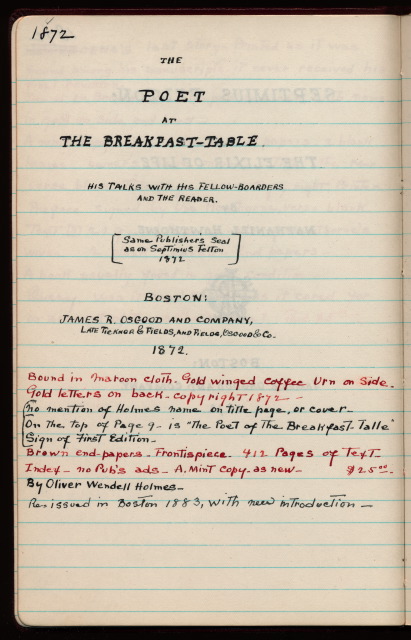 1872
THE
POET
AT
THE BREAKFAST-TABLE.
HIS TALKS WITH HIS FELLOW-BOARDERS
AND THE READER.
[Same Publishers Seal
as on Septimius Felton
1872]
BOSTON:
JAMES R. OSGOOD AND COMPANY,
LATE TICKNOR & FIELDS, AND FIELDS, OSGOOD & Co.
1872.
Bound in maroon cloth. Gold winged coffee Urn on Side.
Gold letters on back - copyright 1872 -
no mention of Holmes name on title page, or cover -
On the top of Page 9 - is "The Poet of The Breakfast-Talle"
Sign of First Edition -
Brown end-papers - Frontispiece. 412 Pages of Text.
Index - no Pub's ads - A. Mint copy. as new - $25.00
By Oliver Wendell Holmes -
Re-issued in Boston 1883, with new introduction -